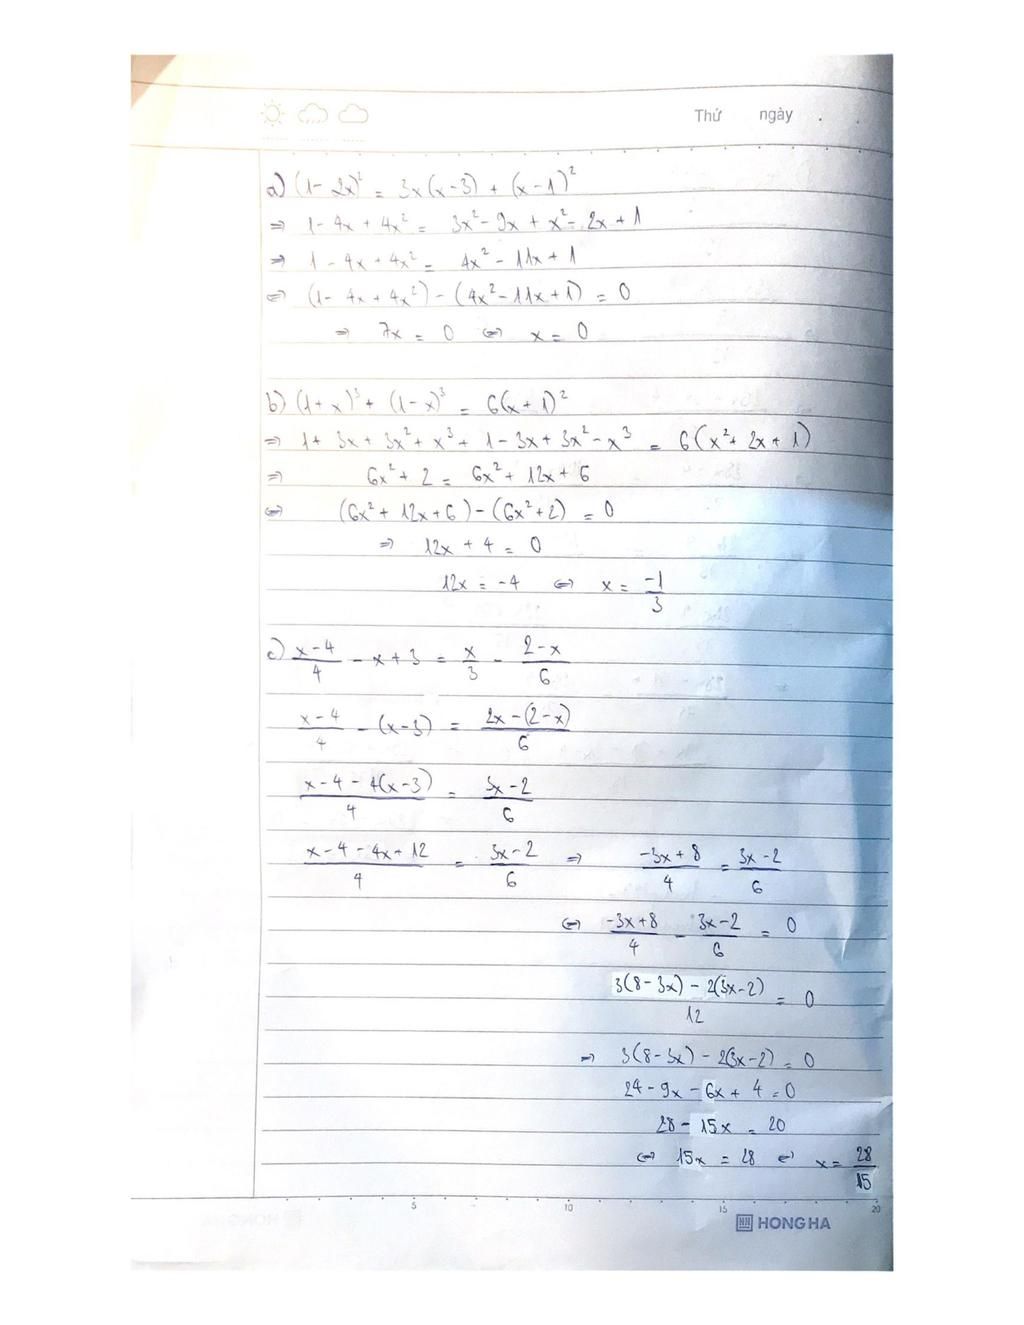 Thứ ngày
a) (1 - 2x)² = 3x(x-3) + (x-1)²
⇒ 1 - 4x + 4x² = 3x² - 9x + x² - 2x + 1
⇒ 1 - 4x + 4x² = 4x² - 11x + 1
⇔ (1 - 4x + 4x²) - (4x² - 11x + 1) = 0
⇒ 7x = 0 ⇔ x = 0
b) (1+x)³ + (1-x)³ = 6(x+1)²
⇒ 1 + 3x + 3x² + x³ + 1 - 3x + 3x² - x³ = 6(x² + 2x + 1)
⇒ 6x² + 2 = 6x² + 12x + 6
⇔ (6x² + 12x + 6) - (6x² + 2) = 0
⇒ 12x + 4 = 0
12x = -4 ⇔ x = -1/3
c) (x-4)/4 - x + 3 = x/3 - (2-x)/6
(x-4)/4 - (x-3) = (2x-(2-x))/6
(x-4-4(x-3))/4 = (3x-2)/6
(x-4-4x+12)/4 = (3x-2)/6 ⇒ (-3x+8)/4 = (3x-2)/6
⇔ (-3x+8)/4 - (3x-2)/6 = 0
(3(8-3x) - 2(3x-2))/12 = 0
⇒ 3(8-3x) - 2(3x-2) = 0
24 - 9x - 6x + 4 = 0
28 - 15x = 20
⇔ 15x = 28 ⇔ x = 28/15
5 10 15 20
HH HONG HA